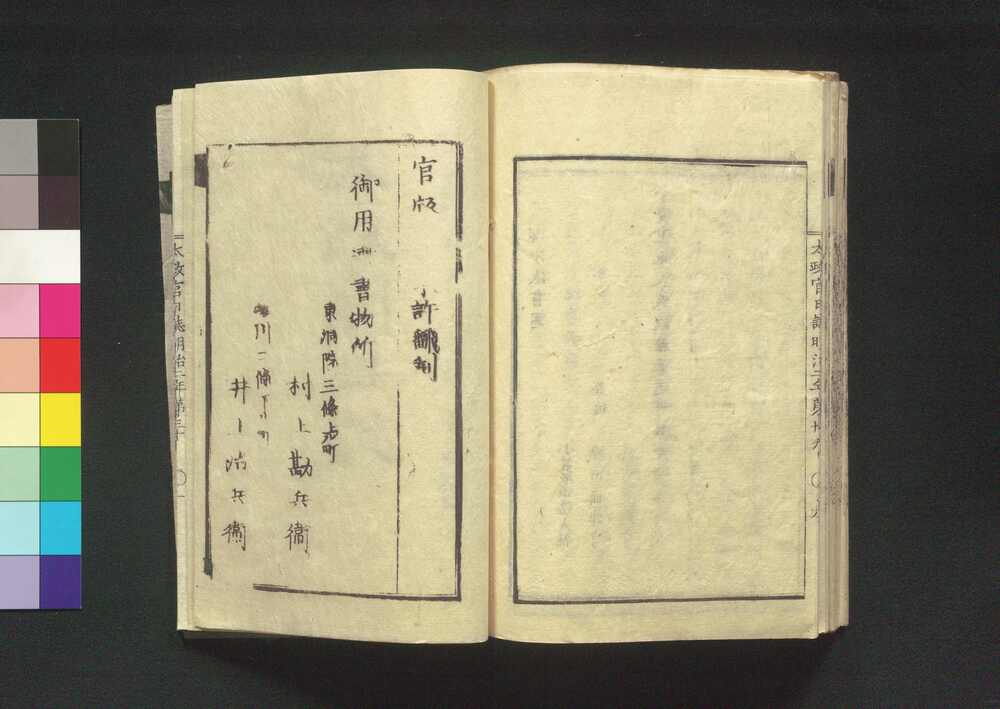 太政官日誌明治二年第廿九
官版 不許翻刻
御用御書物所
東洞院三條上ル町
村上勘兵衛
二條下ル町
井上治兵衛
太政官日誌明治二年第三十